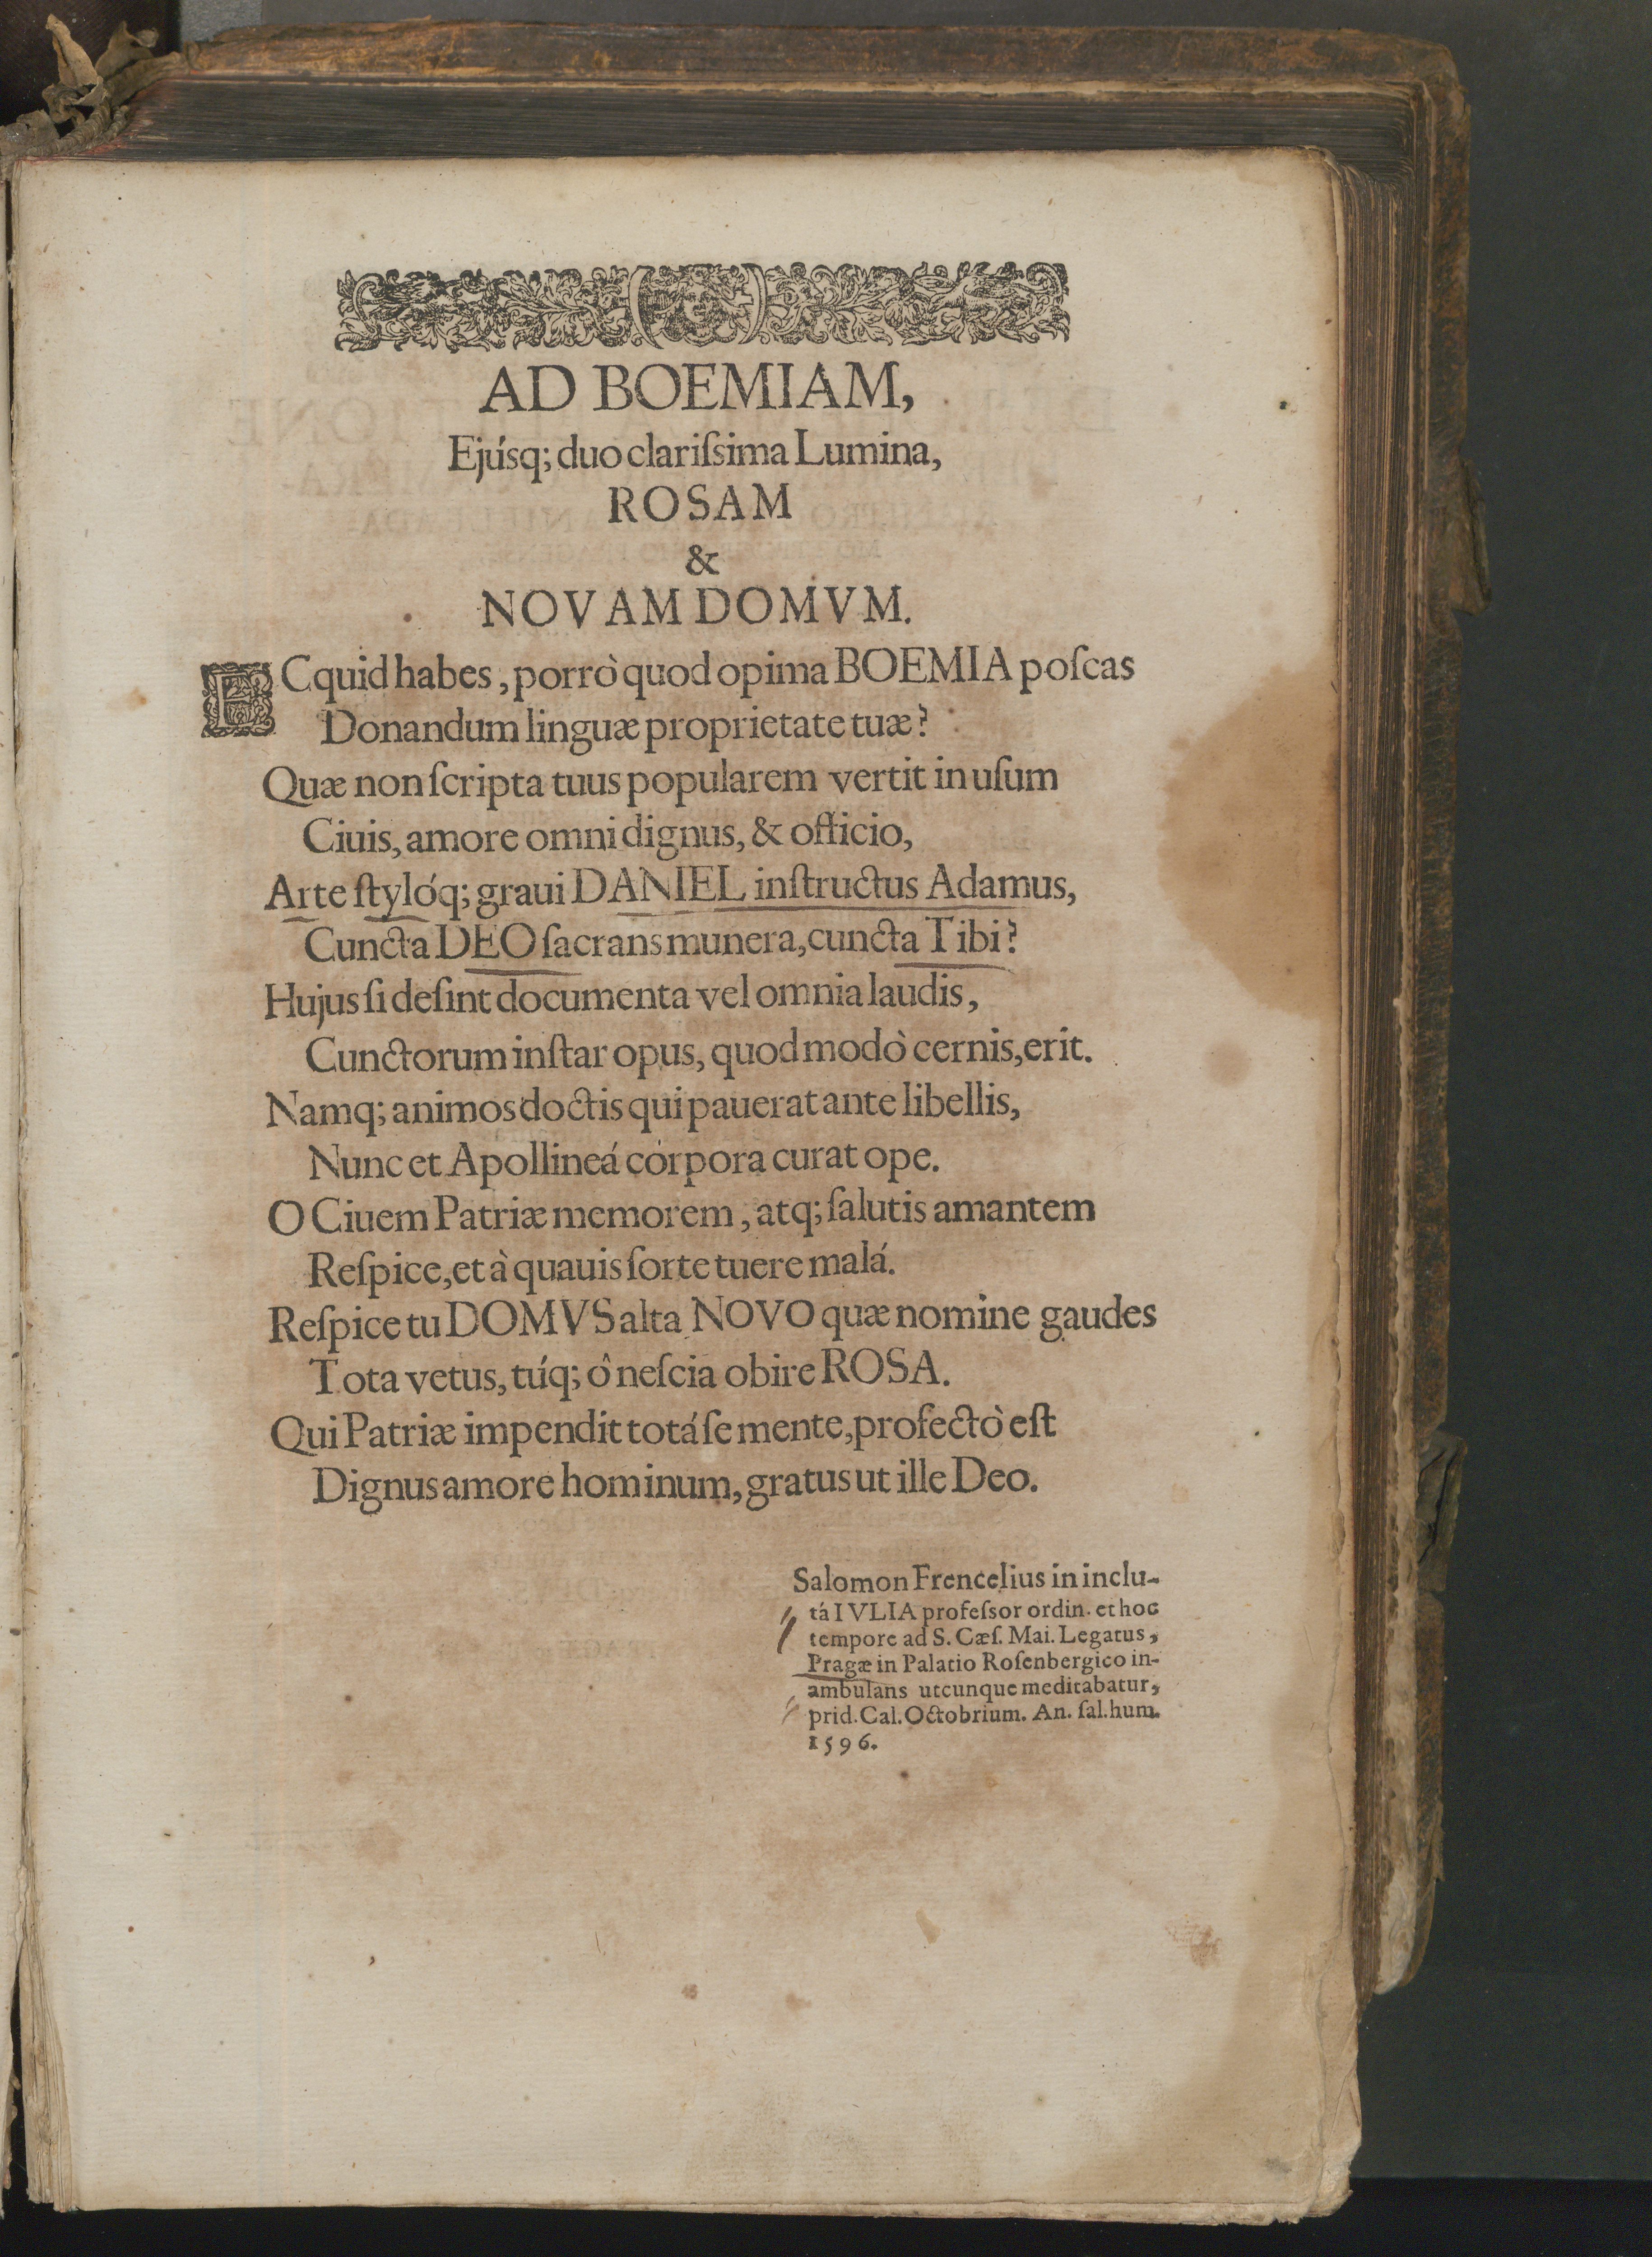 AD BOEMIAM,
Ejúsq; duo clariſsima Lumina,
ROSAM
&
NOVAM DOMVM.
ECquid habes, porrò quod opima BOEMIA poſcas
Donandum linguæ proprietate tuæ?
Quæ non ſcripta tuus popularem vertit in uſum
Ciuis, amore omni dignus, & officio,
Arte ſtylóq; graui DANIEL inſtructus Adamus,
Cuncta DEO ſacrans munera, cuncta Tibi?
Hujus ſi deſint documenta vel omnia laudis,
Cunctorum inſtar opus, quod modò cernis, erit.
Namq; animos doctis qui pauerat ante libellis,
Nunc et Apollineá corpora curat ope.
O Ciuem Patriæ memorem, atq; ſalutis amantem
Reſpice, et à quauis ſorte tuere malá.
Reſpice tu DOMVS alta NOVO quæ nomine gaudes
Tota vetus, túq; ô neſcia obire ROSA.
Qui Patriæ impendit totá ſe mente, profectò eſt
Dignus amore hominum, gratus ut ille Deo.
Salomon Frencelius in inclu-
tá IVLIA profeſsor ordin. et hoc
tempore ad S. Cæſ. Mai. Legatus,
Pragæ in Palatio Roſenbergico in-
ambulans utcunque meditabatur,
prid. Cal. Octobrium. An. ſal. hum.
1596.